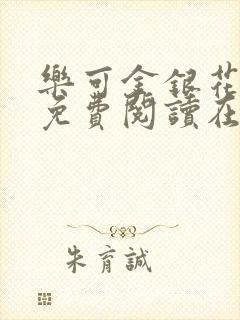 樂可金銀花
免費閱讀在
朱育誠